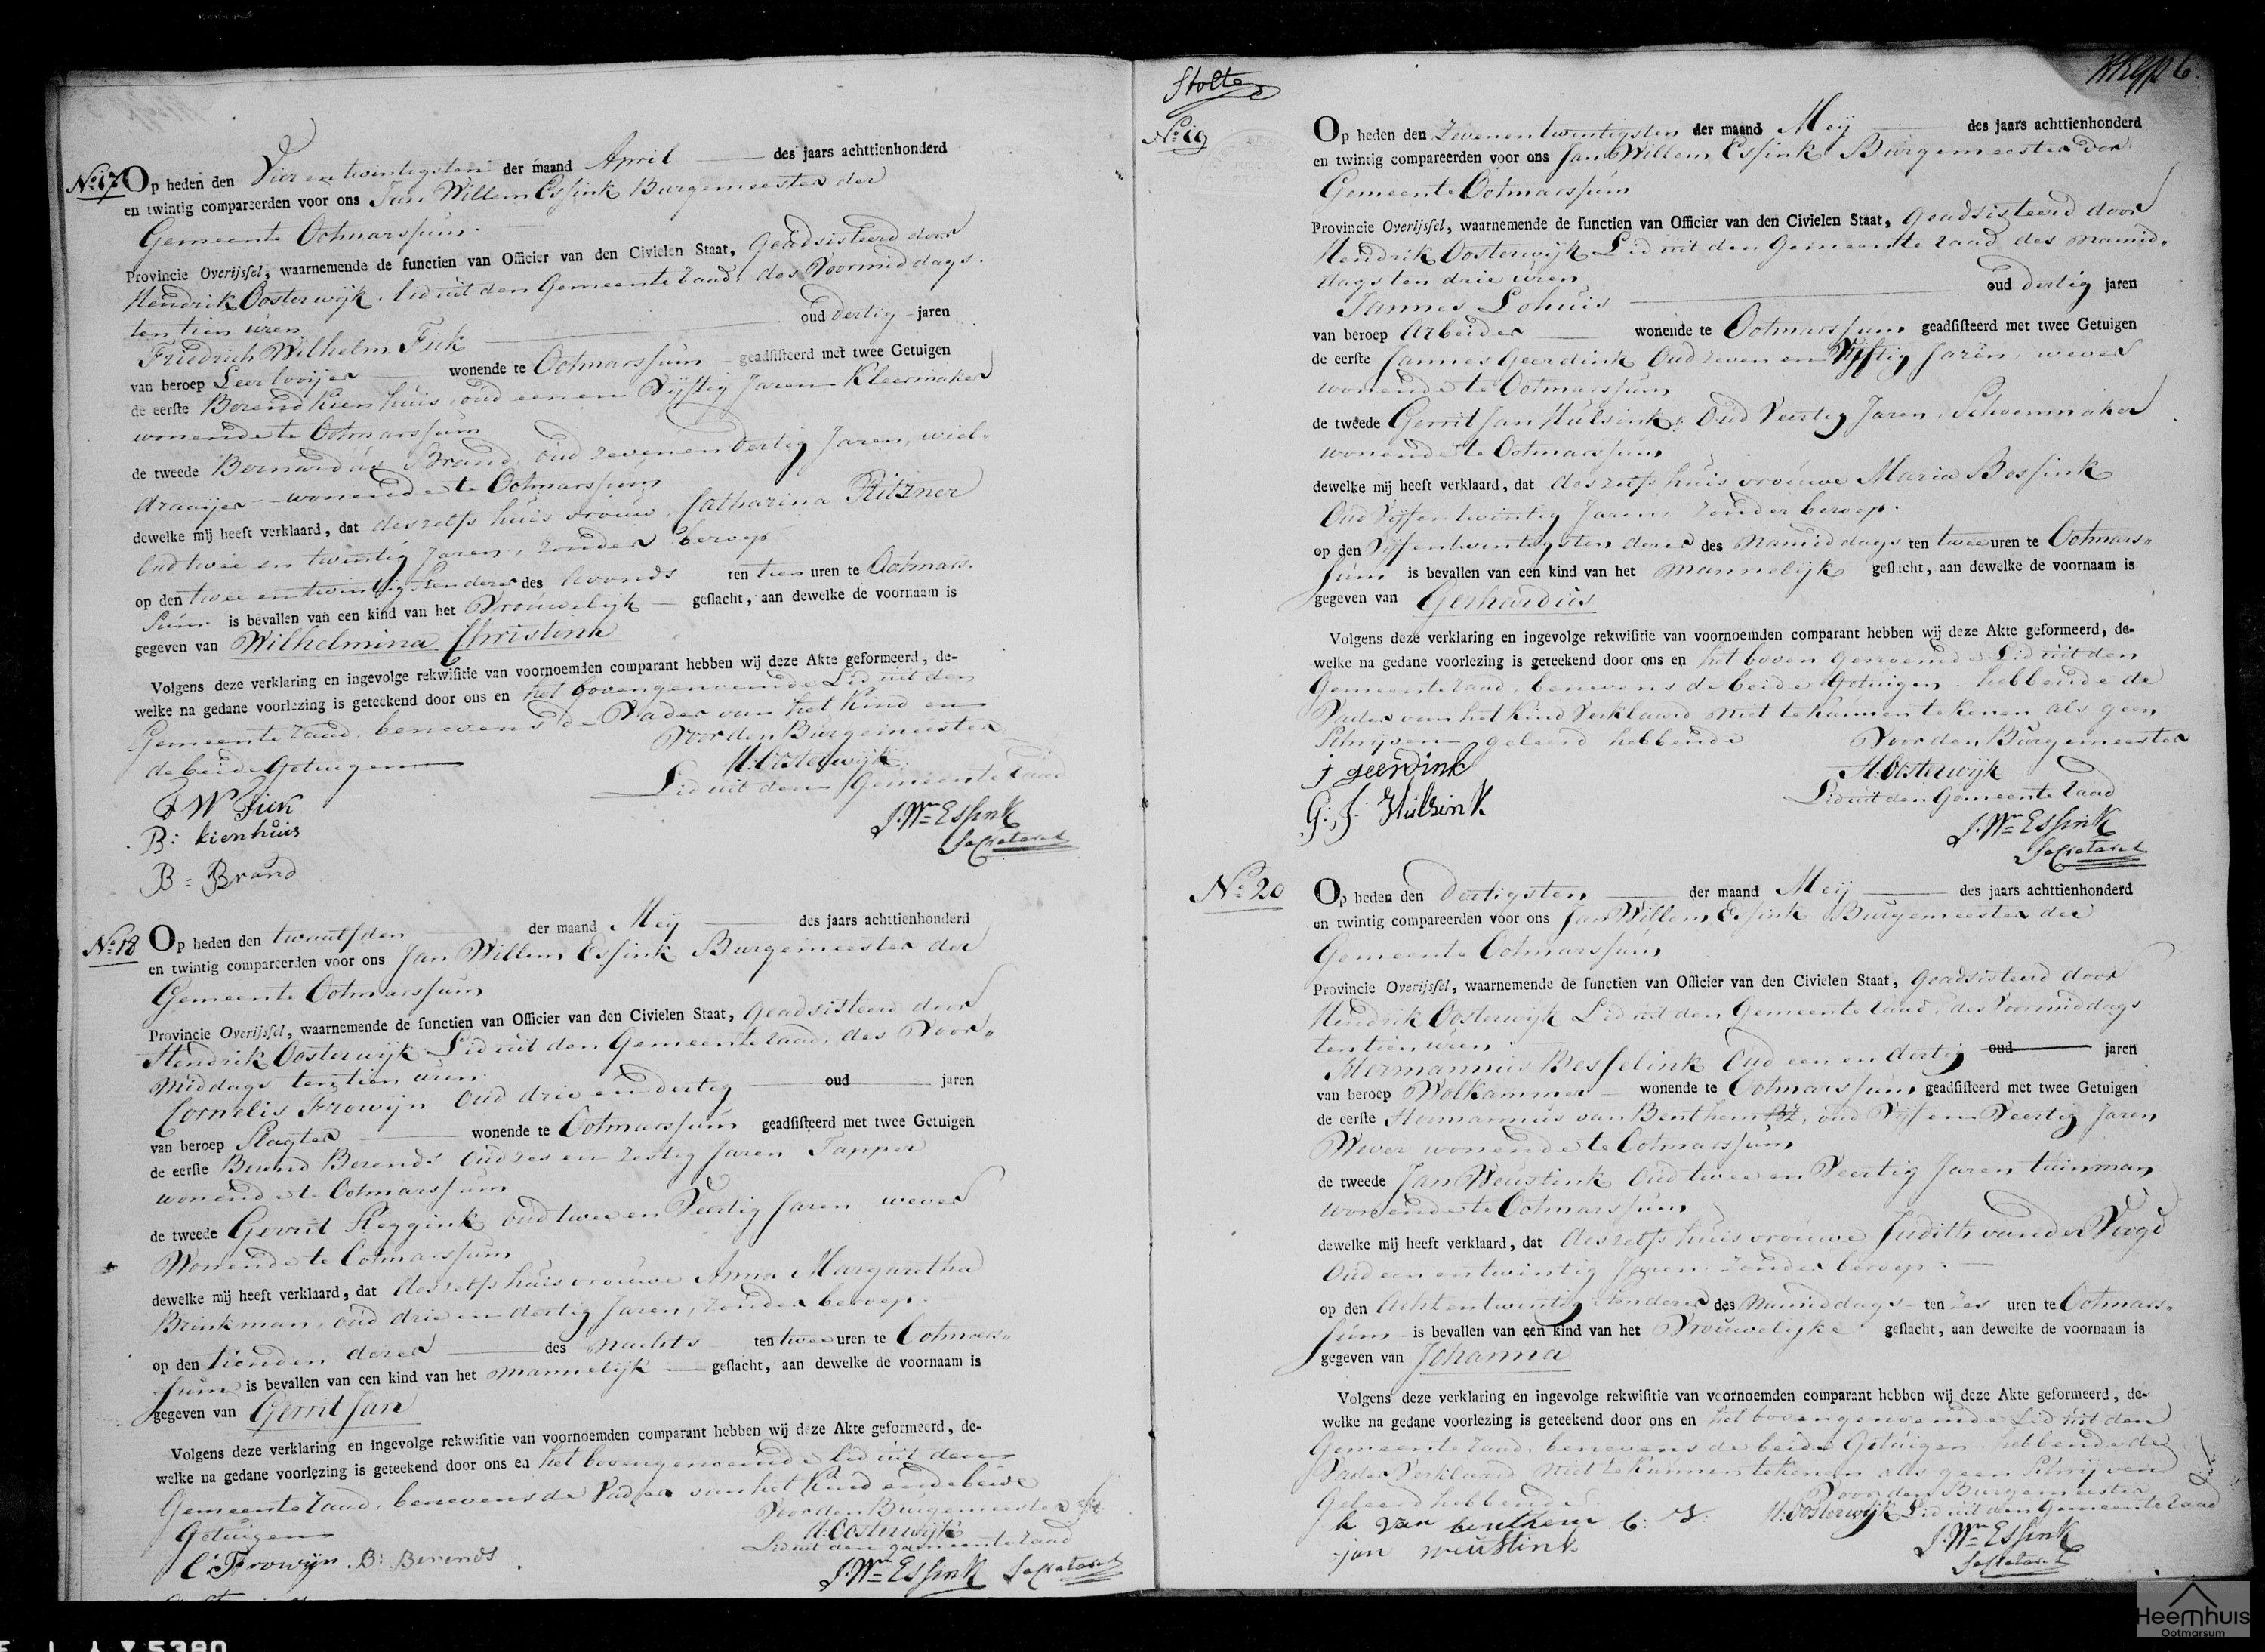 No. 17 Op heden den Vier en twintigsten der maand April des jaars achttienhonderd
en twintig compareerden voor ons Jan Willem Essink Burgemeester der
Gemeente Ootmarssum
Provincie Overijssel, waarnemende de functien van Officier van den Civielen Staat, geadsisteerd door
Hendrik Oosterwijk, lid uit den Gemeente raad, des Voormiddags.
ten tien uren
Friedrich Wilhelm Fick oud dertig jaren
van beroep Leerlooijer wonende te Ootmarssum geadsisteerd met twee Getuigen
de eerste Berend Kienhuis, oud een en Vijftig Jaren Kleermaker
wonende te Ootmarssum
de tweede Bernardus Brand, oud zeven en dertig Jaren, wiel-
draaijer wonende te Ootmarssum
dewelke mij heeft verklaard, dat deszelfs huis vrouw, Catharina Ritzner
Oud twee en twintig Jaren, zonder beroep
op den twee en twintigsten dezer des Avonds ten tien uren te Ootmars-
sum is bevallen van een kind van het Vrouwelijk geslacht, aan dewelke de voornaam is
gegeven van Wilhelmina Christina
Volgens deze verklaring en ingevolge rekwisitie van voornoemden comparant hebben wij deze Akte geformeerd, de-
welke na gedane voorlezing is geteekend door ons en het bovengenoemde Lid uit den
Gemeente raad, benevens de Vader van het Kind en
de beide Getuigen Voor den Burgemeester
H: Oosterwijk
Lid uit den Gemeente raad
F W Fick
B: kienhuis
J. Wm Essink
Secretaris
B: Brand
No. 18 Op heden den twaalfden der maand Meij des jaars achttienhonderd
en twintig compareerden voor ons Jan Willem Essink Burgemeester der
Gemeente Ootmarssum
Provincie Overijssel, waarnemende de functien van Officier van den Civielen Staat, geadsisteerd door
Hendrik Oosterwijk Lid uit den Gemeente raad, des Voor-
middags ten tien uren
Cornelis Frowijn Oud drie en dertig oud jaren
van beroep Slagter wonende te Ootmarssum geadsisteerd met twee Getuigen
de eerste Berend Berends Oud zes en zestig Jaren Tapper
wonende te Ootmarssum
de tweede Gerrit Reggink oud twee en Veertig Jaren wever
Wonende te Ootmarssum
dewelke mij heeft verklaard, dat deszelfs huisvrouwe Anna Margaretha
Brinkman, oud drie en dertig Jaren, zonder beroep
op den tienden dezer des Nachts ten twee uren te Ootmars-
sum is bevallen van een kind van het mannelijk geslacht, aan dewelke de voornaam is
gegeven van Gerrit Jan
Volgens deze verklaring en ingevolge rekwisitie van voornoemden comparant hebben wij deze Akte geformeerd, de-
welke na gedane voorlezing is geteekend door ons en het bovengenoemde lid uit den
Gemeente raad, benevens de Vader van het Kind en de beide
Getuigen Voor den Burgemeester
H: Oosterwijk
Lid uit den gemeente raad
C: Frowijn. B: Berends
J. Wm Essink Secretaris
Stolte
No. 19 Op heden den Zevenentwintigsten der maand Meij des jaars achttienhonderd
en twintig compareerden voor ons Jan Willem Essink Burgemeester der
Gemeente Ootmarssum
Provincie Overijssel, waarnemende de functien van Officier van den Civielen Staat, geadsisteerd door
Hendrik Oosterwijk Lid uit den Gemeente raad, des namid-
dags ten drie uren
Jannes Lohuis oud dertig jaren
van beroep Arbeider wonende te Ootmarssum geadsisteerd met twee Getuigen
de eerste Jannes Geerdink Oud zeven en Vijftig Jaren, wever
wonende te Ootmarssum
de tweede Gerrit Jan Hulsink, Oud Veertig Jaren, Schoenmaker
wonende te Ootmarssum
dewelke mij heeft verklaard, dat deszelfs huisvrouwe Maria Bossink
Oud Vijfentwintig Jaren, zonder beroep.
op den Vijfentwintigsten dezer des Namiddags ten twee uren te Ootmars-
sum is bevallen van een kind van het mannelijk geslacht, aan dewelke de voornaam is
gegeven van Gerhardus
Volgens deze verklaring en ingevolge rekwisitie van voornoemden comparant hebben wij deze Akte geformeerd, de-
welke na gedane voorlezing is geteekend door ons en het boven genoemde Lid uit den
Gemeente raad, benevens de beide Getuigen. hebbende de
Vader van het kind Verklaard Niet te kunnen tekenen als geen
Schrijven geleerd hebbende Voor den Burgemeester
j geerdink H: Oosterwijk
Lid uit den Gemeente raad
G: J: Hulsink
J. Wm Essink
Secretaris
No. 20 Op heden den dertigsten der maand Meij des jaars achttienhonderd
en twintig compareerden voor ons Jan Willem Essink Burgemeester der
Gemeente Ootmarssum
Provincie Overijssel, waarnemende de functien van Officier van den Civielen Staat, geadsisteerd door
Hendrik Oosterwijk Lid uit den Gemeente raad, des Voormiddags
ten tien uren
Hermannus Besselink Oud een en dertig oud jaren
van beroep Wolkammer wonende te Ootmarssum geadsisteerd met twee Getuigen
de eerste Hermannus van Benthem BZ, oud Vijf en Veertig Jaren
Wever wonende te Ootmarssum
de tweede Jan Weustink Oud twee en Veertig Jaren tuinman
wonende te Ootmarssum
dewelke mij heeft verklaard, dat deszelfs huisvrouwe Judith van der Voogd
Oud een en twintig Jaren zonder beroep.
op den Achtentwintigsten dezer des Namiddags ten zes uren te Ootmars-
sum is bevallen van een kind van het Vrouwelijke geslacht, aan dewelke de voornaam is
gegeven van Johanna
Volgens deze verklaring en ingevolge rekwisitie van voornoemden comparant hebben wij deze Akte geformeerd, de-
welke na gedane voorlezing is geteekend door ons en het bovengenoemde Lid uit den
Gemeente raad, benevens de beide Getuigen hebbende de
Vader Verklaard Niet te kunnen tekenen als geen Schrijven
Geleerd hebbende Voor den Burgemeester
h van benthem b: z. H: Oosterwijk Lid uit den Gemeente raad
jan weustink
J. Wm Essink
Secretaris
5380
Heemhuis
Ootmarsum